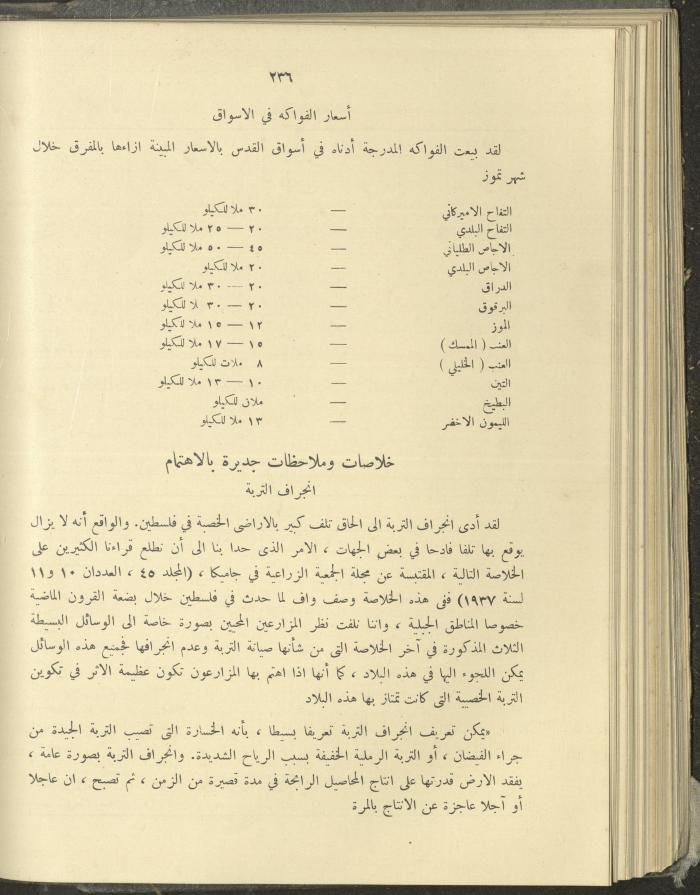 ٢٣٦
أسعار الفواكه في الاسواق
لقد بيعت الفواكه المدرجة أدناه في أسواق القدس بالاسعار المبينة ازاءها بالمفرق خلال
شهر تموز
التفاح الاميركاني — ٣٠ ملا للكيلو
التفاح البلدي — ٢٠ — ٢٥ ملا للكيلو
الاجاص الطلياني — ٤٥ — ٥٠ ملا للكيلو
الاجاص البلدي — ٢٠ ملا للكيلو
الدراق — ٢٠ — ٣٠ ملا للكيلو
البرقوق — ٢٠ — ٣٠ ملا للكيلو
الموز — ١٢ — ١٥ ملا للكيلو
العنب ( الممسك ) — ١٥ — ١٧ ملا للكيلو
العنب ( الخليلي ) — ٨ ملات للكيلو
التين — ١٠ — ١٣ ملا للكيلو
البطيخ — ملان للكيلو
الليمون الاخضر — ١٣ ملا للكيلو
خلاصات وملاحظات جديرة بالاهتمام
انجراف التربة
لقد أدى انجراف التربة الى الحاق تلف كبير بالاراضى الخصبة في فلسطين. والواقع أنه لا يزال
يوقع بها تلفا فادحا في بعض الجهات ، الامر الذى حدا بنا الى أن نطلع قراءنا الكثيرين على
الخلاصة التالية ، المقتبسة عن مجلة الجمعية الزراعية في جاميكا ، (المجلد ٤٥ ، العددان ١٠ و١١
لسنة ١٩٣٧) ففى هذه الخلاصة وصف واف لما حدث في فلسطين خلال بضعة القرون الماضية
خصوصا المناطق الجبلية ، واننا نلفت نظر المزارعين المحيين بصورة خاصة الى الوسائل البسيطة
الثلاث المذكورة في آخر الخلاصة التى من شأنها صيانة التربة وعدم انجرافها فجميع هذه الوسائل
يمكن اللجوء اليها في هذه البلاد ، كما أنها اذا اهتم بها المزارعون تكون عظيمة الاثر في تكوين
التربة الخصبية التى كانت تمتاز بها هذه البلاد
«يمكن تعريف انجراف التربة تعريفا بسيطا ، بأنه الخسارة التى تصيب التربة الجيدة من
جراء الفيضان ، أو التربة الرملية الخفيفة بسبب الرياح الشديدة. وانجراف التربة بصورة عامة ،
يفقد الارض قدرتها على انتاج المحاصيل الرابحة في مدة قصيرة من الزمن ، ثم تصبح ، ان عاجلا
أو آجلا عاجزة عن الانتاج بالمرة